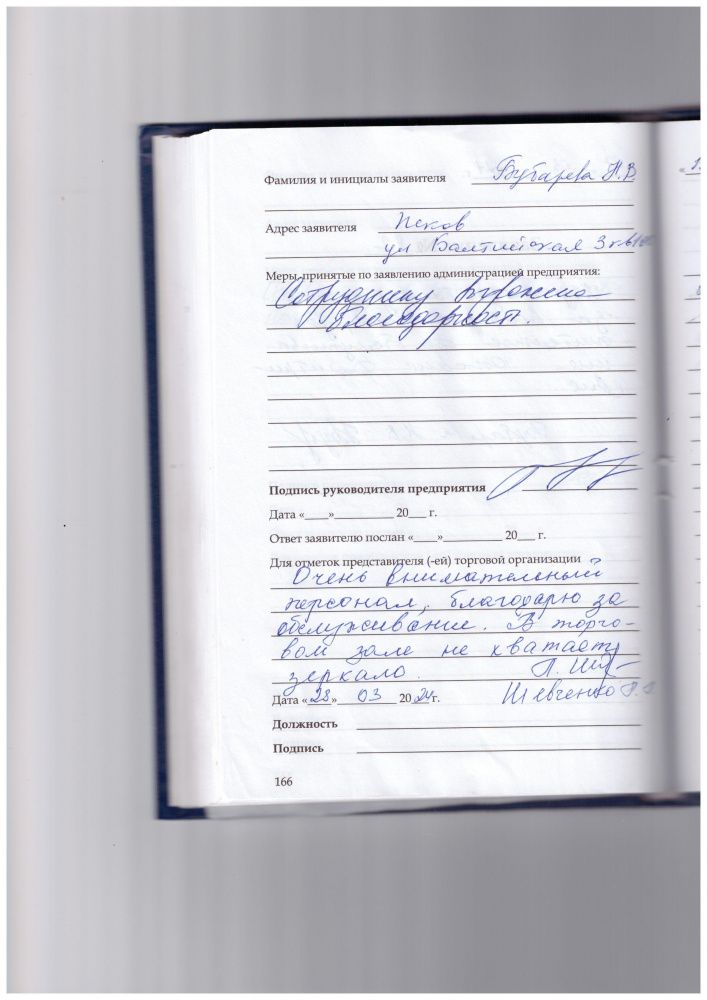 Фамилия и инициалы заявителя Бубарева Н.В
Адрес заявителя Псков
ул Балтийская 3 кв
Меры, принятые по заявлению администрацией предприятия:
Сотруднику выражена
благодарность.
Подпись руководителя предприятия
Дата «____»__________ 20___ г.
Ответ заявителю послан «____»__________ 20___ г.
Для отметок представителя (-ей) торговой организации
Очень внимательный
персонал, благодарю за
обслуживание. В торго-
вом зале не хватает
зеркало.
Дата «28» 03 2024г. Шевченко
Должность
Подпись
166